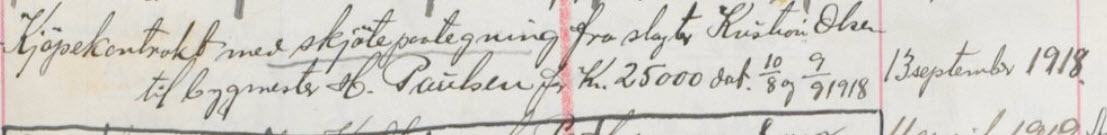 Kjøpekontrakt med skjøtepaategning fra slagter Kristian Olsen
til bygmester H. Paulsen for Kr. 25000 dat. 10/8 og 9/9 1918
13 september 1918.